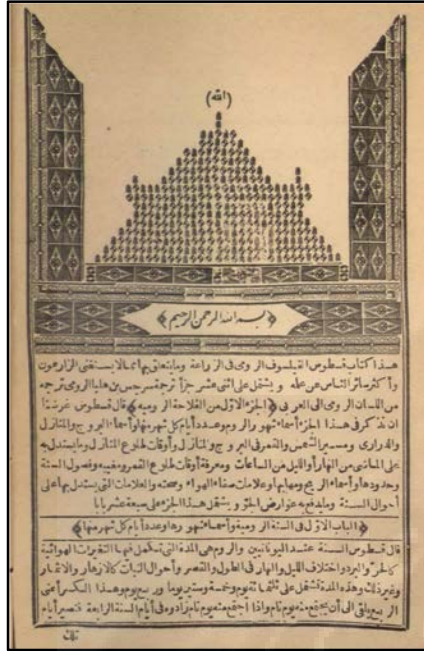 (الله)
بسم الله الرحمن الرحيم
هذا كتاب قسطوس الفيلسوف الرومي في الزراعة وما يتعلق بها مما لا يستغني الزارعون
وأكثر سائر الناس عن عمله ويشتمل على اثني عشر جزأ ترجمة سرجس بن هليا الرومي ترجمه
من اللسان الرومي الى العربي (الجزء الاول من الفلاحة الرومية) قال قسطوس غرضنا
ان نذكر في هذا الجزء أسماء شهور الروم وعدد أيام كل شهر منها وأسماء البروج والمنازل
والدراري ومسير الشمس والقمر في البروج والمنازل وأوقات طلوع المنازل وما يستدل به
على الماضي من النهار أو الليل من الساعات ومعرفة أوقات طلوع القمر ومغيبه وفصول السنة
وحدودها وأسماء الريح ومهابها وعلامات صفاء الهواء وصحته والعلامات التي يستدل بها على
أحوال السنة وما يدفع به عوارض الجو ويشتمل هذا الجزء على سبعة عشر بابا
(الباب الاول في السنة الرومية وأسماء شهورها وعدد أيام كل شهر منها)
قال قسطوس السنة عند اليونانيين والروم هي المدة التي تستكمل فيها التغيرات الهوائية
كالحر والبرد واختلاف الليل والنهار في الطول والقصر وأحوال النبات كالازهار والاثمار
وغير ذلك وهذه المدة تشتمل على ثلثمائة يوم وخمسة وستين يوما وربع يوم وهذا الكسر أعني
الربع يلقى الى أن يجتمع منه يوم تام واذا اجتمع منه يوم تام زادوه في أيام السنة الرابعة فتصير أيام
ثلث